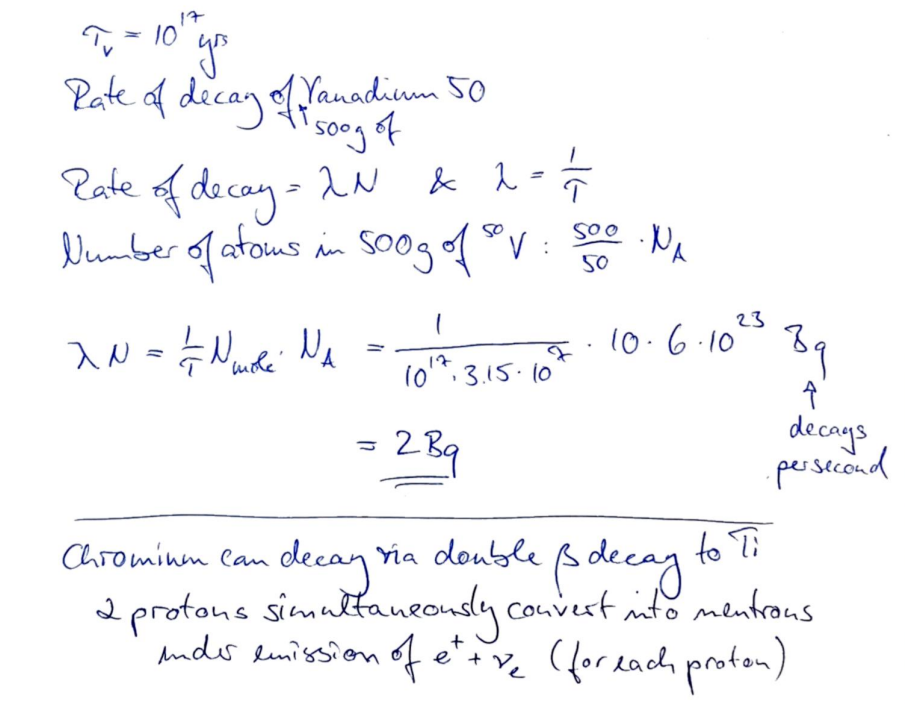 τ_v = 10^17 yrs
Rate of decay of ↑ Vanadium 50
500g of
Rate of decay = λN & λ = 1/τ
Number of atoms in 500g of ^50V : 500/50 · N_A
λN = 1/τ N_mole · N_A = 1/(10^17 · 3.15 · 10^7) · 10 · 6 · 10^23 Bq
↑
decays
per second
= 2 Bq
Chromium can decay via double β decay to Ti
2 protons simultaneously convert into neutrons
under emission of e^+ + ν_e (for each proton)